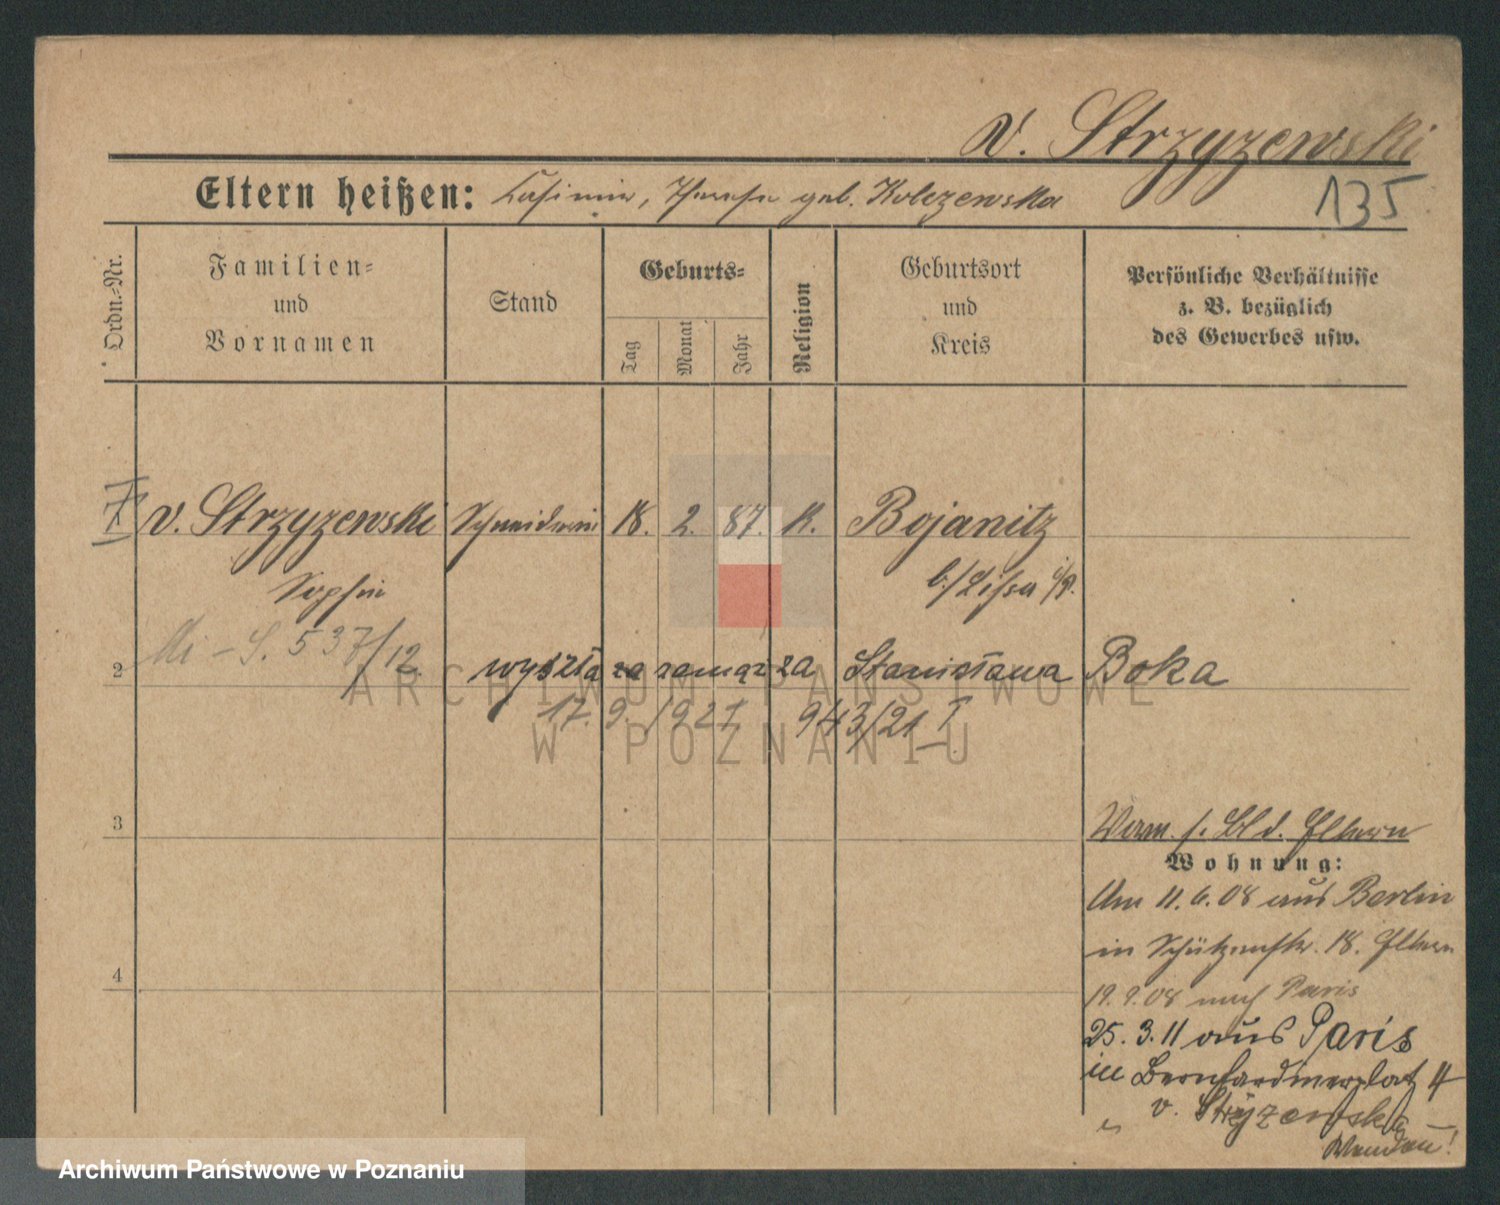 v. Strzyzewski
Eltern heißen: Casimir, Therese geb. Kolczewska
135
Ordn.-Nr.
Familien-
und
Vornamen
Stand
Geburts-
Tag
Monat
Jahr
Religion
Geburtsort
und
Kreis
Persönliche Verhältnisse
z. B. bezüglich
des Gewerbes usw.
1 v. Strzyzewski Schneiderin 18. 2. 87. K. Bojanitz
Sophie b./Lissa i/P.
537/12
2 wyszła za zamąż za Stanisława Boka
17. 9. 1921 943/21 I
ARCHIWUM PAŃSTWOWE
W POZNANIU
3
Verm. s. Bl d. Eltern
Wohnung:
Am 11. 6. 08 aus Berlin
in Schützenstr. 18. Eltern
4
19. 9. 08 nach Paris
25. 3. 11 aus Paris
in Bernhardinerplatz 4
v. Stryzewska
Wenden!
Archiwum Państwowe w Poznaniu